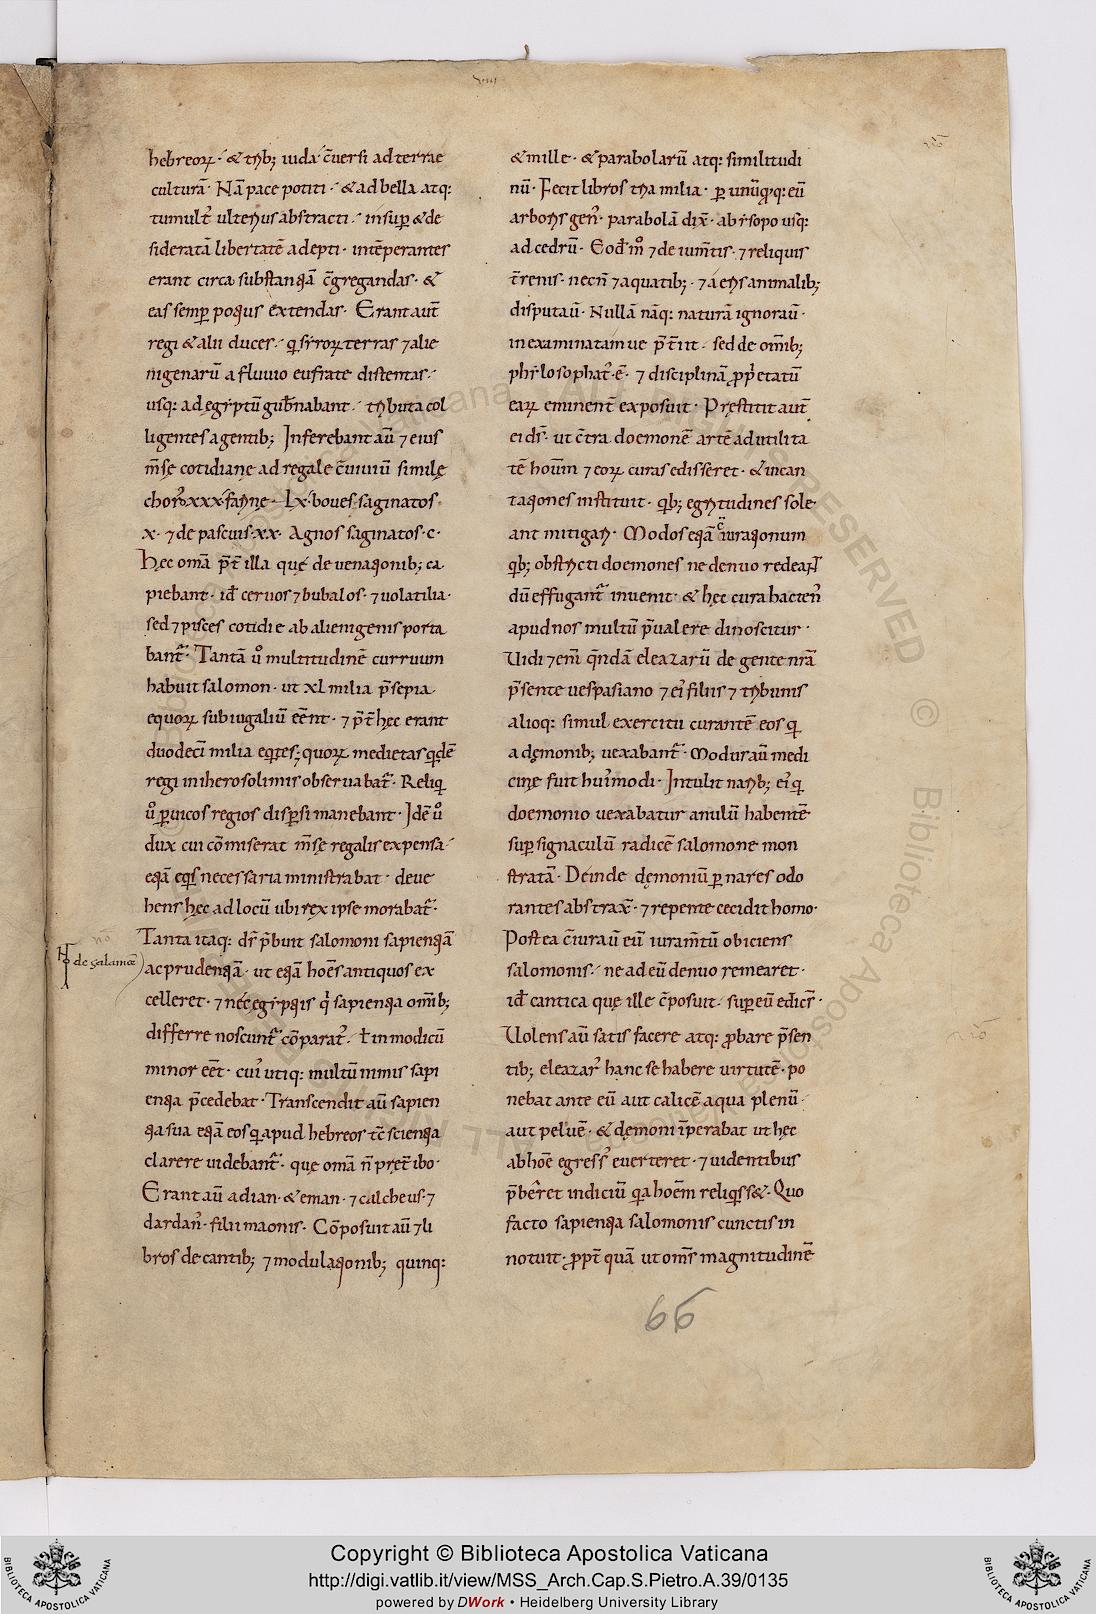 hebreoꝝ· & trib; iuda c̄uersi ad terrae
culturā· Nā pace potiti· & ad bella atq:
tumult᷒ ulterius abstracti· insup̲ & de
sideratā libertatē adepti· intēperantes
erant circa substantiā c̄gregandas· &
eas semp̲ potius extendas· Erant aut̄
regi & alii duces· qi syroꝝ terras ⁊ alie
nigenarū a fluuio eufrate distentas·
usq: ad egiptū gub̄nabant· tributa col
ligentes a gentib; Inferebant aū ⁊ eius
m̄sę cotidianę ad regale c̄uiuiū similę
choro᷒ xxx· farinę· Lx· boues saginatos
x· ⁊ de pascuis xx· Agnos saginatos c·
hęc om̄a p̄t̄ illa quę de uenationib; ca
piebant· id̄ ceruos ⁊ bubalos· ⁊ uolatilia·
sed ⁊ pisces cotidie ab alienigenis porta
bant᷒· Tantā ů multitudinē curruum
habuit salomon· ut xl milia p̄sepia
equoꝝ subiugaliū ēent· ⁊ p̄t̄ hęc erant
duodecī milia eq̇tes; quoꝝ medietas qidē
regi in iherosolimis obseruabat᷒· Reliqi
ů p̲ uicos regios disp̲si manebant· Idē ů
dux cui cōmiserat m̄sę regalis expensā
etiā eqis necessaria ministrabat· deue
hens hęc ad locū ubi rex ipse morabat᷒·
Tanta itaq: ds̄ p̄buit salomoni sapientiā
de salamōe
ac prudentiā· ut etiā hoēs antiquos ex
celleret· ⁊ nec egiptiis qi sapientia om̄ib;
differre noscunt᷒ cōparat᷒· ł in modicū
minor eēt· cui᷒ utiq: multū nimis sapi
entia p̄cedebat· Transcendit aū sapien
tia sua etiā eos qi apud hebreos tc̄ scientia
clarere uidebant᷒· que om̄a n̄ pret̄ ibo·
Erant aū adian· & eman· ⁊ calcheus· ⁊
dardan᷒· filii maonis. Cōposuit aū ⁊ li
bros de cantib; ⁊ modulationib; quinq:
& mille· & parabolarū atq: similitudi
nū· Fecit libros tria milia· p̲ unūq̄q: eū
arboris gen᷒· parabolā dix̄· ab ysopo usq:
ad cedrū· Eod̄ m̊ ⁊ de ium̄tis· ⁊ reliquis
t̄renis· necn̄ ⁊ aquatib;· ⁊ aeriis animalib;
disputaū· Nullā nāq: naturā ignoraū·
inexaminatam ue p̄t̄iit· sed de om̄ib;
phylosophat᷒ ē· ⁊ disciplinā ꝓpi̇etatū
eaꝝ eminent̄ exposuit· Pręstitit aut̄
ei ds̄· ut c̄tra doemonē artē ad utilita
tē hoūm ⁊ eoꝝ curas edisseret· & incan
tationes instituit· qib; egritudines sole
ant mitigari· Modos etiā c̄iurationum
qib; obstricti doemones ne denuo redeant
dū effugant᷒ inuenit· & hęc cura hacten᷒
apud nos multū p̄ualere dinoscitur·
Uidi ⁊enī q̄ndā eleazarū de gente nr̄a
p̄sente uespasiano ⁊ ei᷒ filiis ⁊ tribunis
alioq: simul exercitu curantē eos qi
a dęmonib; uexabant᷒· Modus aū medi
cinę fuit hui᷒modi· Intulit narib; ei᷒ qi
doemonio uexabatur anulū habentē
sup̲ signaculū radicē salomone mon
stratā· Deinde dęmoniū p̲ nares odo
rantes abstrax̄· ⁊ repente cecidit homo·
Postea c̄iuraū eū iuram̄tū obiciens
salomonis· ne ad eū denuo remearet·
id̄ cantica que ille c̄posuit· sup̲ eū edicēs·
Uolens aū satis facere atq: ꝓbare p̄sen
tib; eleazar᷒ hanc se habere uirtutē· po
nebat ante eū aut calicē aqua plenū·
aut peluē· & dęmoni īperabat ut hęc
ab hoīe egress᷒ euerteret· ⁊ uidentibus
p̄beret indiciū qia hoēm reliqiss&· Quo
facto sapientia salomonis cunctis in
notuit· ꝓpt̄ quā ut om̄s magnitudinē
66
Copyright © Biblioteca Apostolica Vaticana
http://digi.vatlib.it/view/MSS_Arch.Cap.S.Pietro.A.39/0135
powered by DWork • Heidelberg University Library